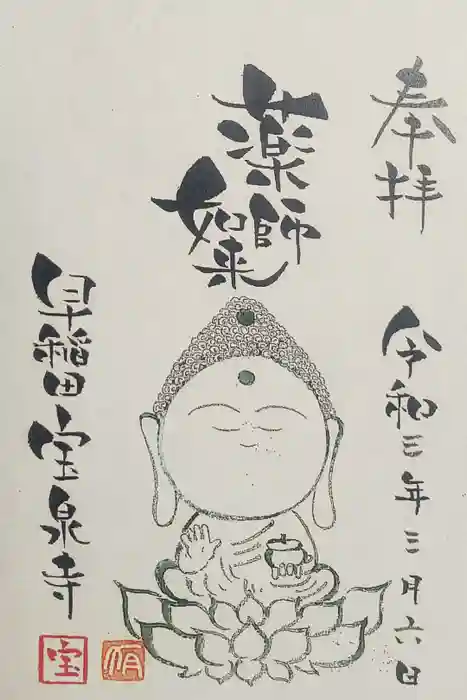 奉拝
令和三年三月六日
薬師
如来
早稲田宝泉寺
宝